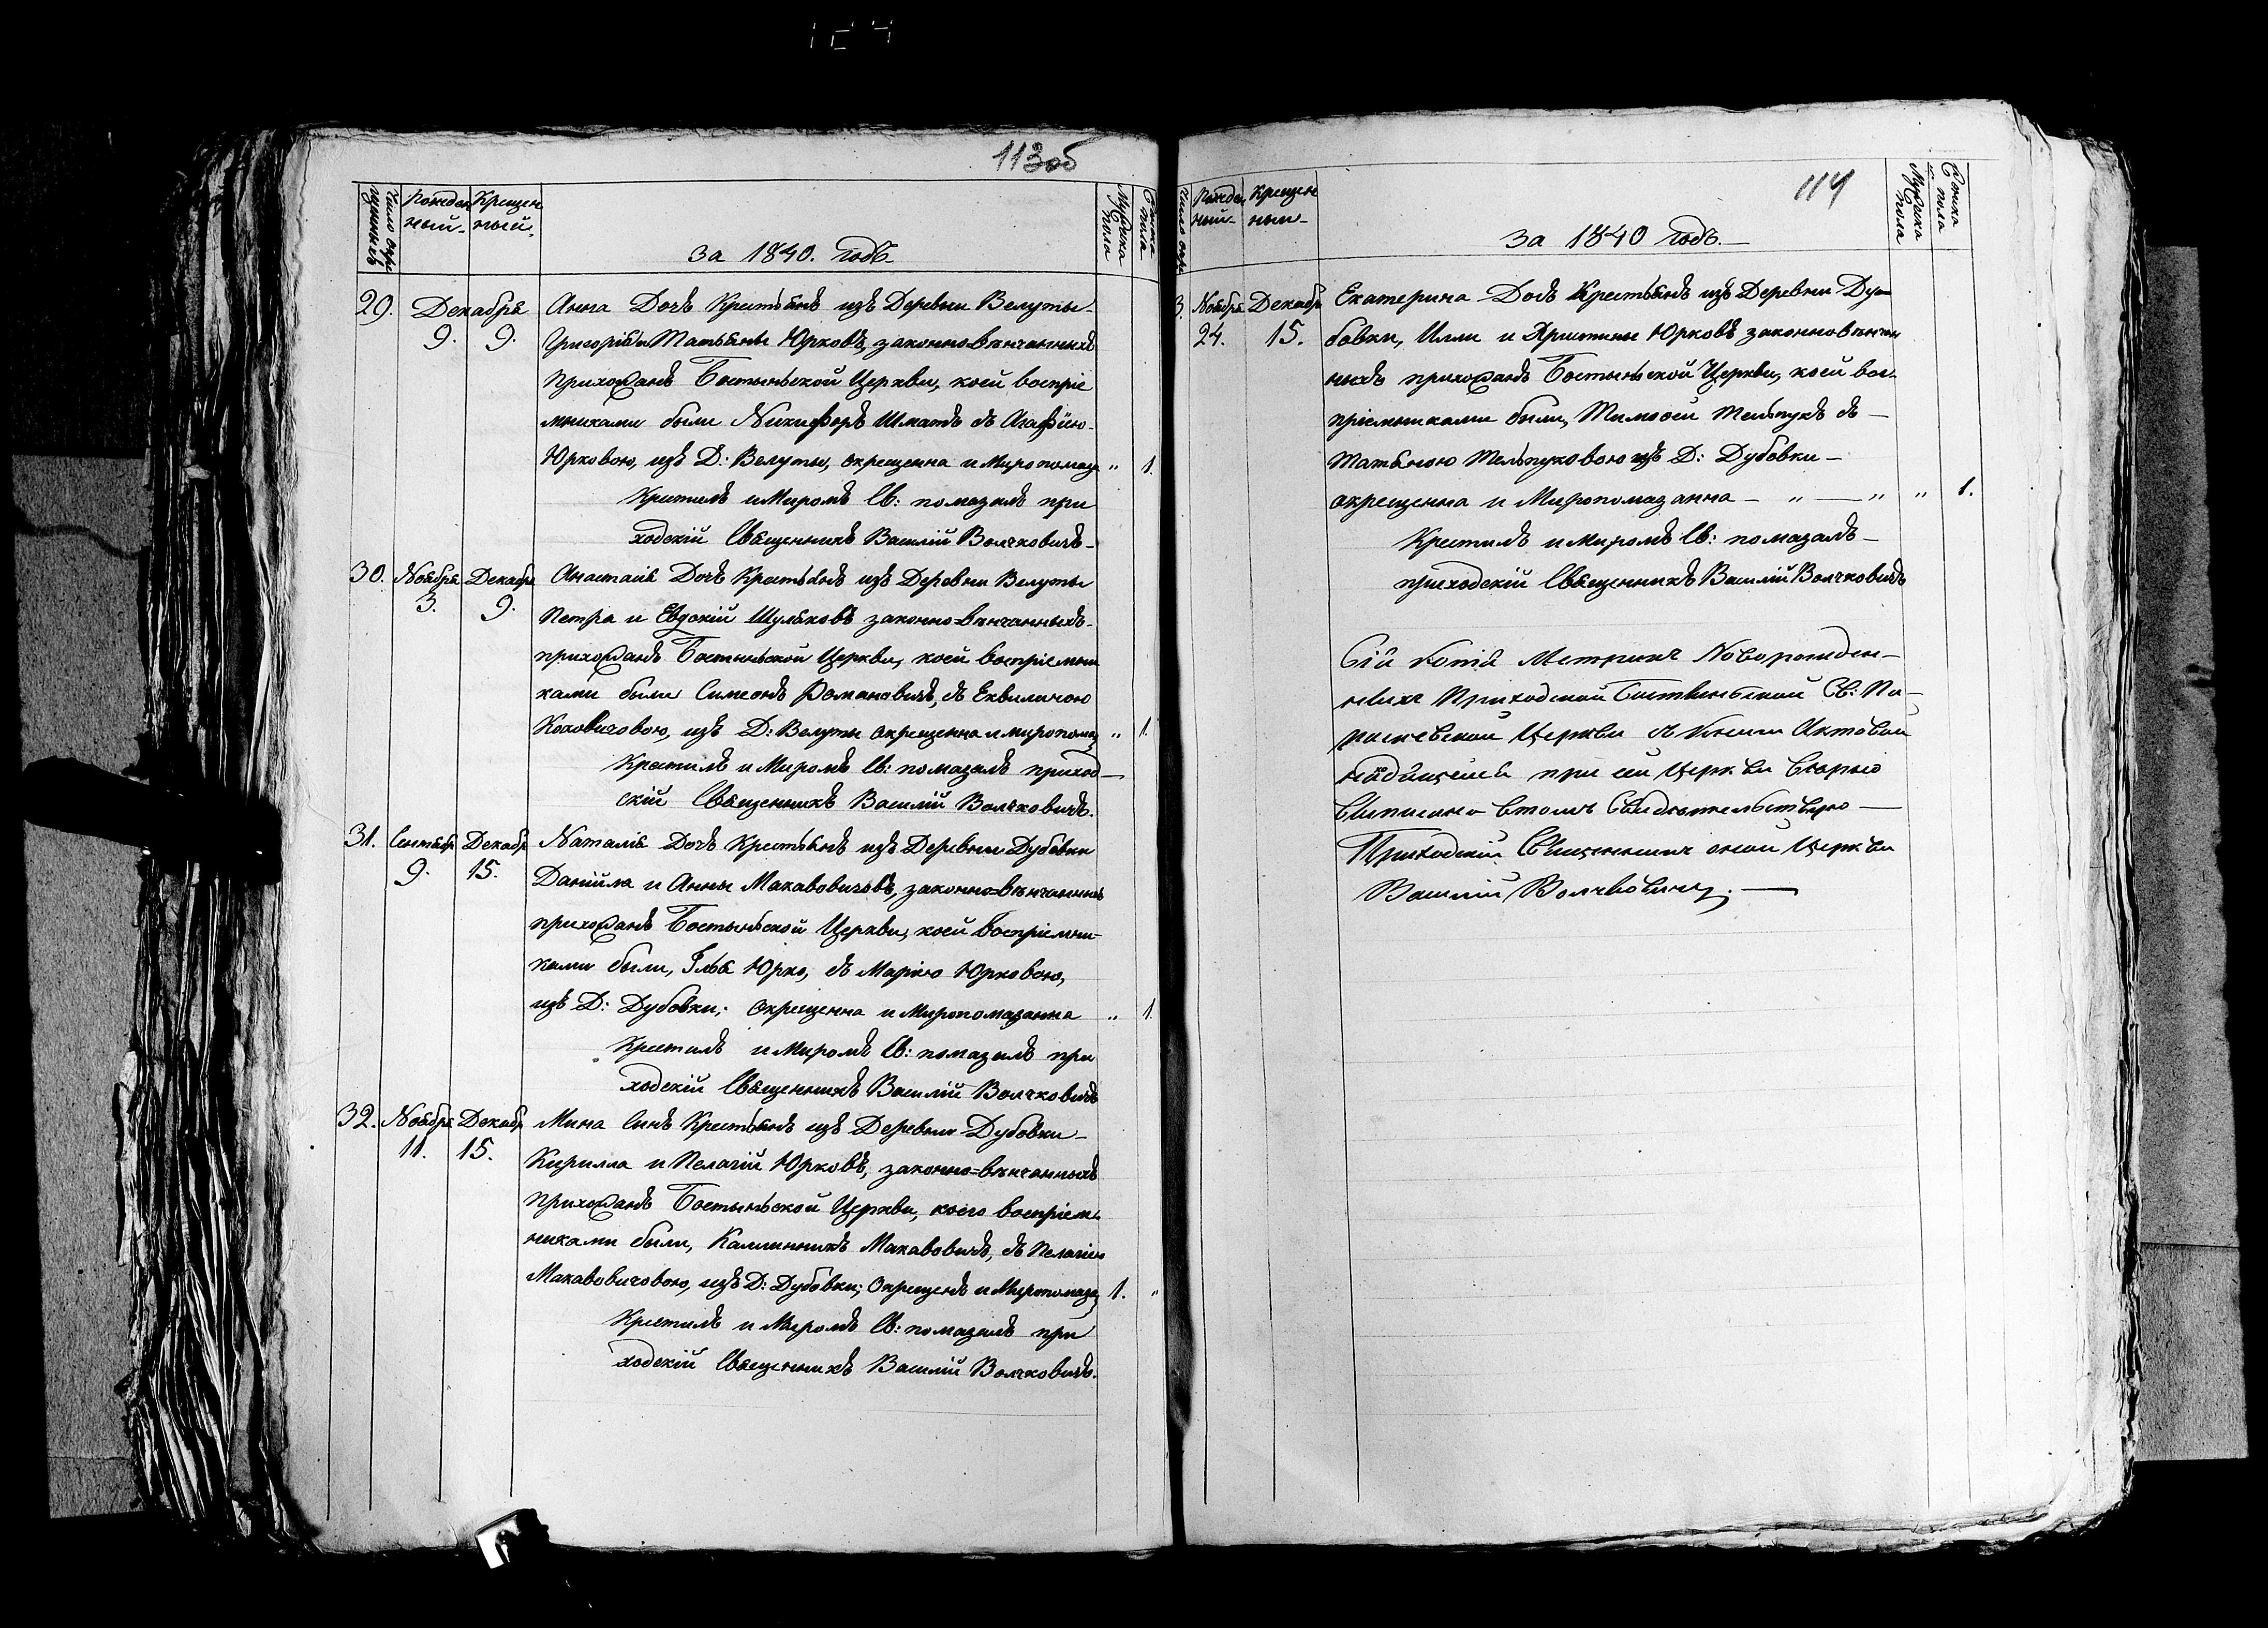 113об
Число окре
щенныхъ
Рожден
ный
Крещен
ный
за 1840. годъ
Мужеска
пола
Женска
пола
29. Декабря Анна Дочь Крестьянъ изъ Деревни Велуты
9. 9. Григорія и Татьяны Юрковъ, законно-вѣнчанныхъ
прихожанъ Бостынской Церкви, коей воспріе
мниками были Никифоръ Шматъ съ Агафіею
Юрковою, изъ Д: Велуты, окрещенна и Миропомаз " 1.
Крестилъ и Миромъ Св: помазалъ при
ходскій Священникъ Василій Волчковичъ
30. Ноября Декабр Анастасія Дочь Крестьянъ изъ Деревни Велуты
3. 9. Петра и Евдокіи Шуляковъ законно-вѣнчанныхъ
прихожанъ Бостынской Церкви, коей воспріемни
ками были Симеонъ Романовичъ, съ
изъ Д: Велуты окрещенна и миропомаз " 1.
Крестилъ и Миромъ Св: помазалъ приход
скій Священникъ Василій Волчковичъ.
31. Сентябр Декабр Наталія Дочь Крестьянъ изъ Деревни Дубовки
9. 15. Даніила и Анны Макавовичовъ, законно-вѣнчанныхъ
прихожанъ Бостынской Церкви, коей воспріемни
ками были, Илья Юрко, съ Маріею Юрковою,
изъ Д: Дубовки; окрещенна и Миропомазанна " 1.
Крестилъ и Миромъ Св: помазалъ при
ходскій Священникъ Василій Волчковичъ
32. Ноября Декабр Мина Сынъ Крестьянъ изъ Деревни Дубовки
11. 15. Кирилла и Пелагіи Юрковъ, законно-вѣнчанныхъ
прихожанъ Бостынской Церкви, коего воспріем
никами были, Каллиникъ Макавовичъ, съ Пелагіею
Макавовичовою, изъ Д: Дубовки; Окрещенъ и Миропомаз 1. "
Крестилъ и Миромъ Св: помазалъ при
ходскій Священникъ Василій Волчковичъ.
114
Число окре
Рожден
ный
Крещен
ный
за 1840 годъ.
Мужеска
пола
Женска
пола
3. Ноября Декабр Екатерина Дочь Крестьянъ изъ Деревни Ду
24. 15. бовки, Иліи и Христины Юрковъ законновѣнчан
ныхъ прихожанъ Бостынской Церкви, коей вос
пріемниками были, Тимофей Тельпукъ съ
Татьяною Тельпуковою изъ Д: Дубовки
окрещенна и Миропомазанна " " " 1.
Крестилъ и Миромъ Св: помазалъ
приходскій Священникъ Василій Волчковичъ
Сія Копія Метрикъ Новорожден
ныхъ Приходской Бостынской Св: Па
раскевской Церкви съ Книги Актовой
при сей Церкви
выписана втомъ Свидѣтельствую
Приходскій Священникъ оной Церкви
Василій Волчковичъ.